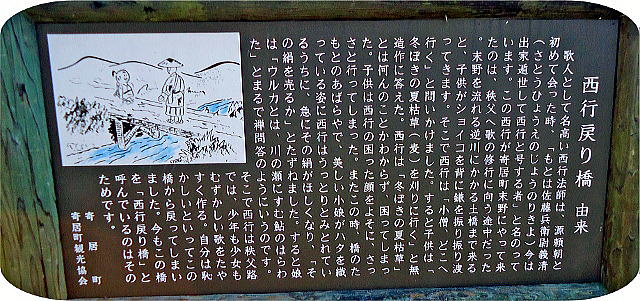 西行戻り橋 由来
歌人として名高い西行法師は、源頼朝と
初めて会った時、「もとは佐藤兵衛尉義清
（さとうひょうえのじょうのりきよ）今は
出家遁世して西行と号する者」と名のって
います。この西行が寄居町末野にやって来
たのは、秩父へ歌の修行に向う途中だった
。末野を流れる逆川にかかる土橋まで来る
と、子供がショイコを背に鎌を振り振り渡
ってきます。そこで西行は「小僧、どこへ
行く」と問いかけました。すると子供は「
冬ぼきの夏枯草（麦）を刈りに行く」と無
造作に答えた。西行は「冬ぼきの夏枯草」
とは何んのことかわからず、困ってしまっ
た。子供は西行の困った顔をよそに、さっ
さと行ってしまった。またこの時、橋のた
もとのあばらやで、美しい小娘がハタを織
っている姿に西行はうっとりとみとれてい
るうちに、急にその絹がほしくなり、「そ
の絹を売るか」とたずねました。すると娘
は「ウルカとは、川の瀬にすむ鮎のはらわ
た」とまるで禅問答のようにいうのです。
そこで西行は秩父路
では、少年も少女も
むずかしい歌をたや
すく作る。自分は恥
かしいといってこの
橋から戻ってしまい
ました。今もこの橋
を「西行戻り橋」と
呼んでいるのはその
ためです。
寄居町
寄居町観光協会